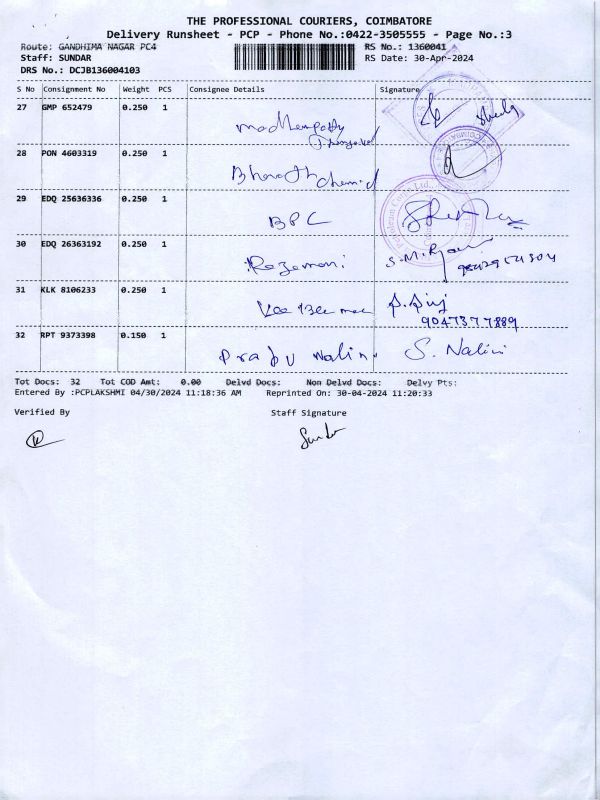 THE PROFESSIONAL COURIERS, COIMBATORE
Delivery Runsheet - PCP - Phone No.:0422-3505555 - Page No.:3
Route: GANDHIMA NAGAR PC4
RS No.: 1360041
Staff: SUNDAR
RS Date: 30-Apr-2024
DRS No.: DCJB136004103
S No Consignment No Weight PCS Consignee Details Signature
27 GMP 652479 0.250 1
28 PON 4603319 0.250 1
Bharath chemid
29 EDQ 25636336 0.250 1
BPC
30 EDQ 26363192 0.250 1
Rogemoni S.M.
31 KLK 8106233 0.250 1
Vee Bee
9047377889
32 RPT 9373398 0.150 1
Prabu Nalini S. Nalini
Tot Docs: 32 Tot COD Amt: 0.00 Delvd Docs: Non Delvd Docs: Delvy Pts:
Entered By :PCPLAKSHMI 04/30/2024 11:18:36 AM Reprinted On: 30-04-2024 11:20:33
Verified By Staff Signature
Sundar